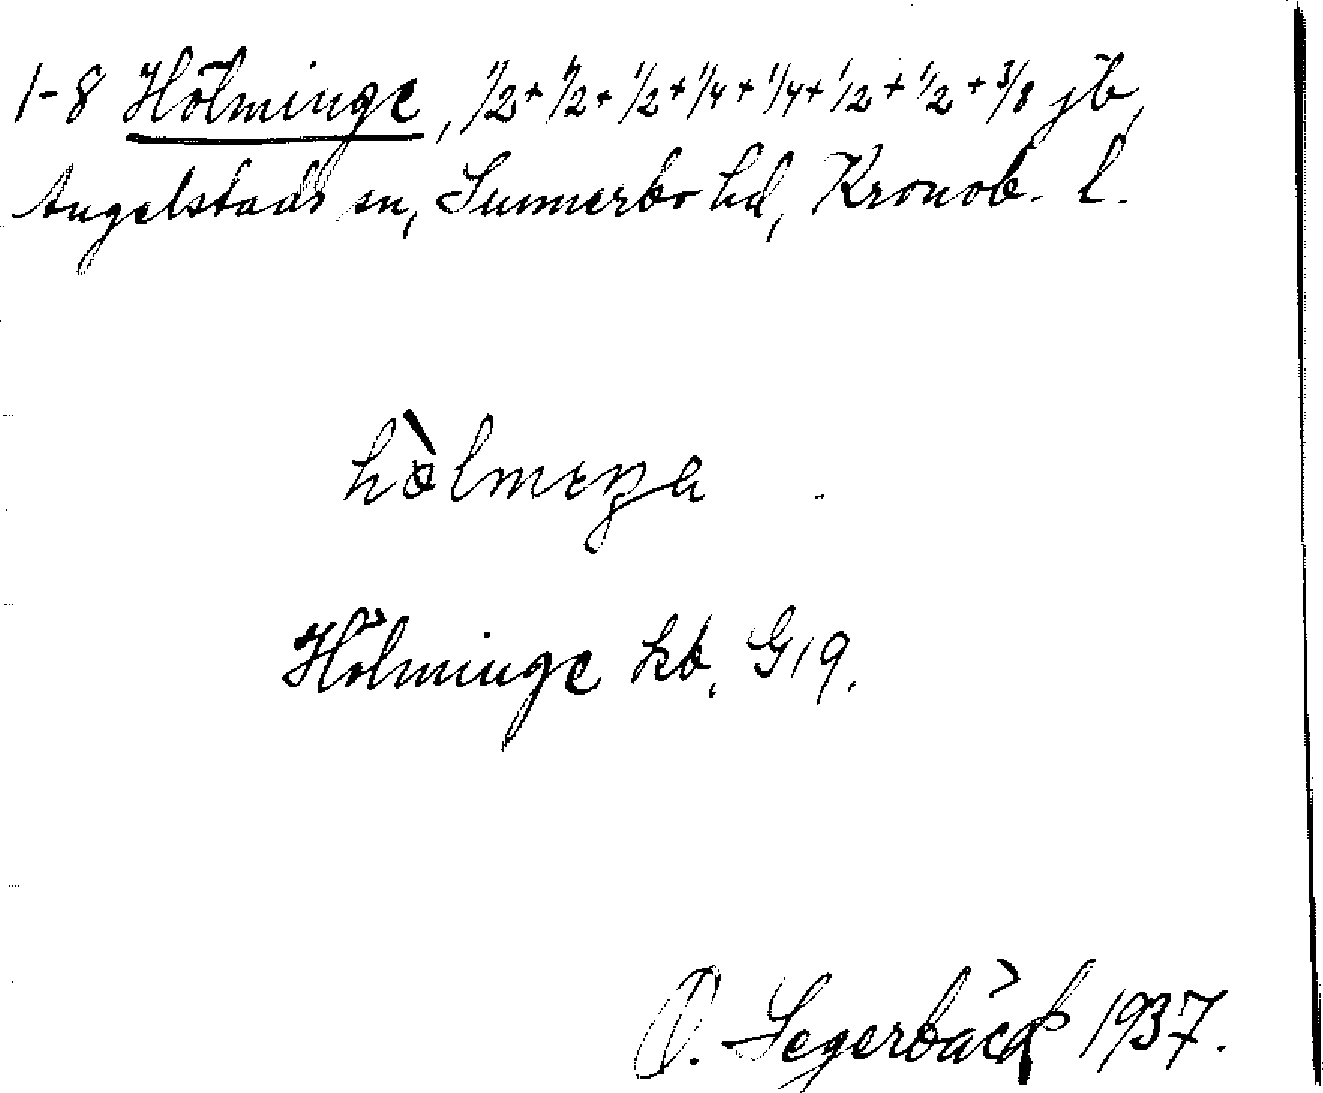 1-8 Hölminge, 1/2+1/2+1/2+1/4+1/4+1/2+1/2+3/8 jb,
Angelstads sn, Sunnerbo hd, Kronob. l.
Hölminge kb. G19.
O. Segerbäck 1937.